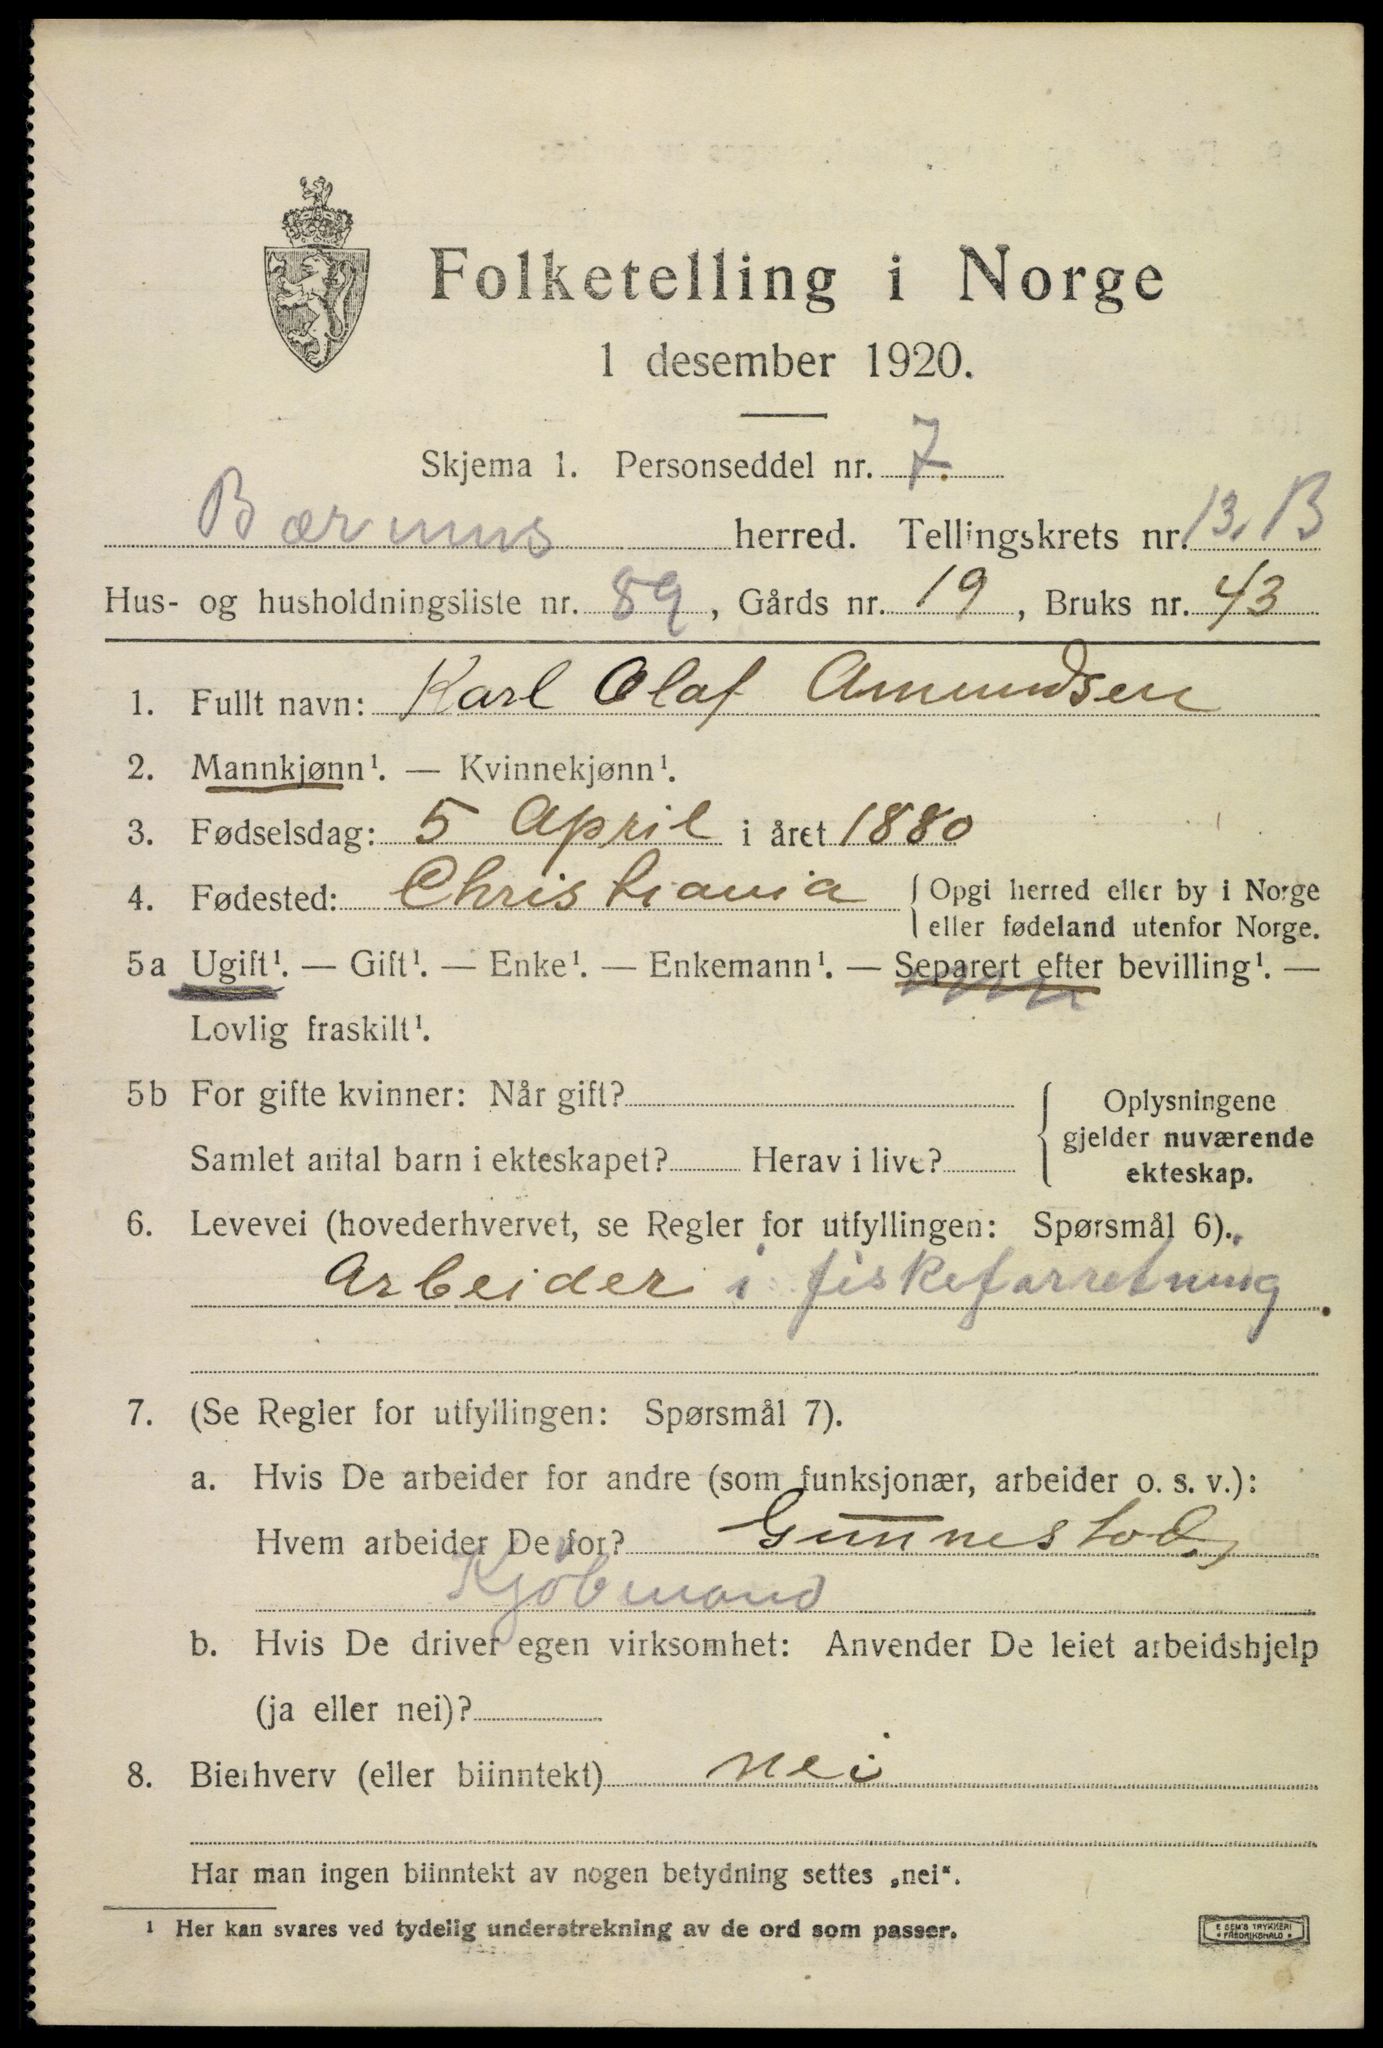 Folketelling i Norge
1 desember 1920.
Skjema 1. Personseddel nr. 7.
Bærums herred. Tellingskrets nr. 13. B
Hus- og husholdningsliste nr. 89, Gårds nr. 19, Bruks nr. 43
1. Fullt navn: Karl Olaf Amundsen
2. Mannkjønn¹. — Kvinnekjønn¹.
3. Fødselsdag: 5 April i året 1880
4. Fødested: Christiania { Opgi herred eller by i Norge
eller fødeland utenfor Norge.
5a Ugift¹. — Gift¹. — Enke¹. — Enkemann¹. — Separert efter bevilling¹. —
Lovlig fraskilt¹.
5b For gifte kvinner: Når gift?
Samlet antal barn i ekteskapet? Herav i live?
Oplysningene
gjelder nuværende
ekteskap.
6. Levevei (hovederhvervet, se Regler for utfyllingen: Spørsmål 6).
Arbeider i fiskeforretning.
7. (Se Regler for utfyllingen: Spørsmål 7).
a. Hvis De arbeider for andre (som funksjonær, arbeider o. s. v.):
Hvem arbeider De for? Gunnestod,
Kjöbmand
b. Hvis De driver egen virksomhet: Anvender De leiet arbeidshjelp
(ja eller nei)?
8. Bierhverv (eller biinntekt) nei
Har man ingen biinntekt av nogen betydning settes „nei“.
¹ Her kan svares ved tydelig understrekning av de ord som passer.
E SEM'S TRYKKERI
FREDRIKSHALD